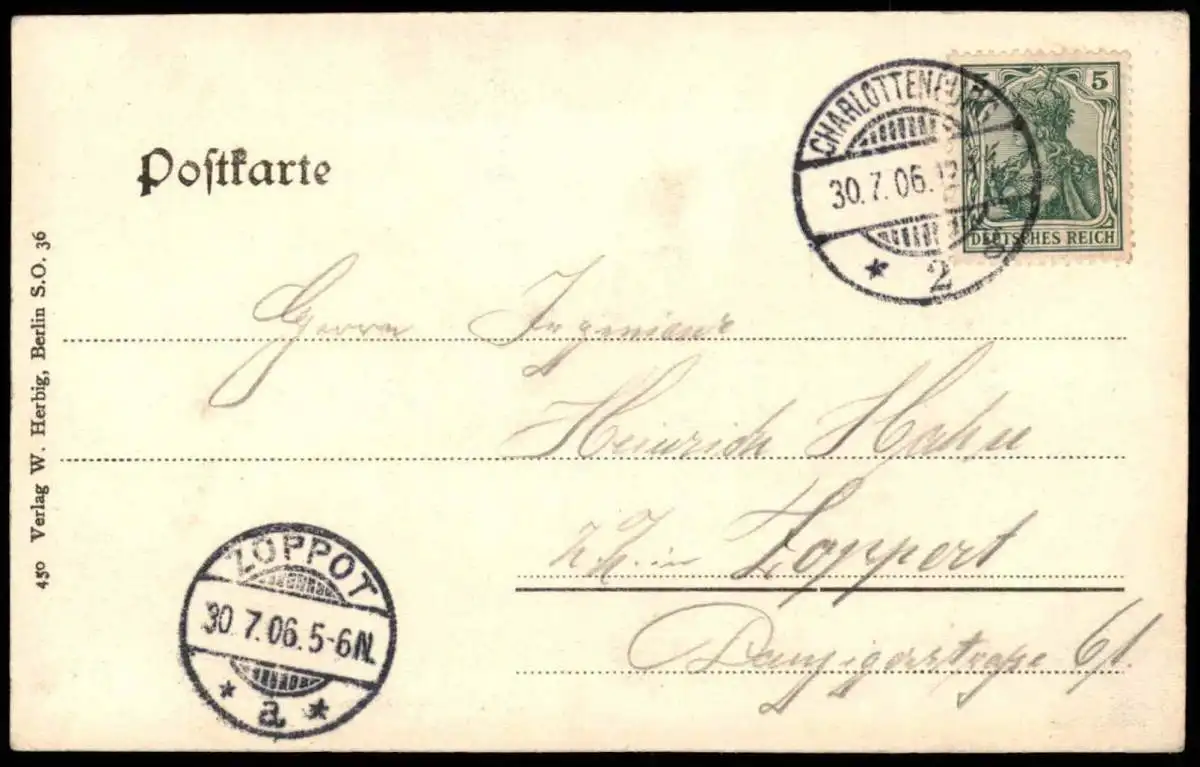 Postkarte
CHARLOTTENBURG
30.7.06.
* 2
5 5
DEUTSCHES REICH
450 Verlag W. Herbig, Berlin S.O. 36
Herrn Ingenieur
Heinrich Hahn
z. Z. in Zoppot
Danzigerstraße
ZOPPOT
30.7.06.5-6N.
* a *